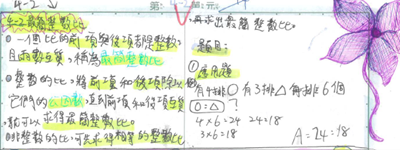 4-2
第:
元:
4-2最簡整數比
一個比的前項與後項都是整數,
且兩數互質,稱為最簡整數比
整數的比,將前項和後項除以
它們的公因數,直到前項和後項互質
就可以求得最簡整數比
非整數的比,可先求得相等的整數比
再求出最簡整數比。
題目:
①應用題
有4排○有3排△每排6個
○=△?
4×6=24 24=18
3×6=18
A=24=18